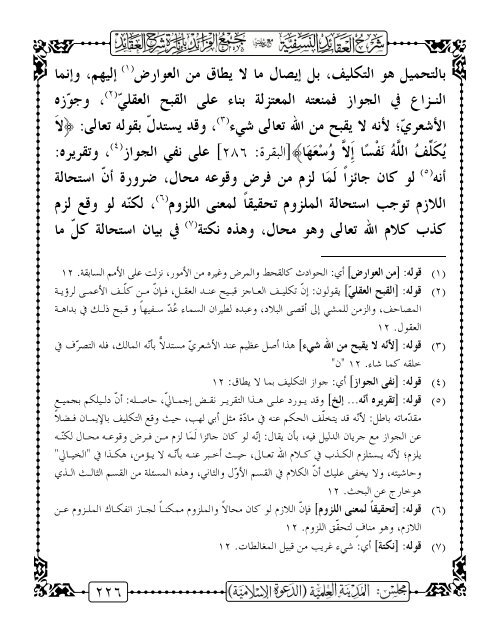 شرح العقائد النسفية مع جمع الفرائد بإنارة شرح العقائد
بالتحميل هو التكليف، بل إيصال ما لا يطاق من العوارض(١) إليهم، وإنما
النـزاع في الجواز فمنعته المعتزلة بناء على القبح العقليّ(٢)، وجوّزه
الأشعريّ؛ لأنه لا يقبح من الله تعالى شيء(٣)، وقد يستدلّ بقوله تعالى: ﴿لاَ
يُكَلِّفُ اللَّهُ نَفْسًا إِلاَّ وُسْعَهَا﴾[البقرة: ٢٨٦] على نفي الجواز(٤)، وتقريره:
أنه(٥) لو كان جائزاً لَمَا لزم من فرض وقوعه محال، ضرورة أنّ استحالة
اللازم توجب استحالة الملزوم تحقيقاً لمعنى اللزوم(٦)، لكنّه لو وقع لزم
كذب كلام الله تعالى وهو محال، وهذه نكتة(٧) في بيان استحالة كلّ ما
(١) قوله: [من العوارض] أي: الحوادث كالقحط والمرض وغيره من الأمور، نزلت على الأمم السابقة. ١٢
(٢) قوله: [القبح العقليّ] يقولون: إنّ تكليف العاجز قبيح عند العقل، فإنّ من كلّف الأعمى لرؤية
المصاحف، والزمن للمشي إلى أقصى البلاد، وعبده لطيران السماء عُدّ سفيهاً و قبح ذلك في بداهة
العقول. ١٢
(٣) قوله: [لأنه لا يقبح من الله شيء] هذا أصل عظيم عند الأشعريّ مستدلاًّ بأنّه المالك، فله التصرّف في
خلقه كما شاء. ١٢ "ن"
(٤) قوله: [نفي الجواز] أي: جواز التكليف بما لا يطاق: ١٢
(٥) قوله: [تقريره أنّه... إلخ] وقد يورد على هذا التقرير نقض إجماليّ، حاصله: أنّ دليلكم بجميع
مقدّماته باطل: لأنّه قد يتخلّف الحكم عنه في مادّة مثل أبي لهب، حيث وقع التكليف بالإيمان فضلاً
عن الجواز مع جريان الدليل فيه، بأن يقال: إنّه لو كان جائزا لَمَا لزم من فرض وقوعه محال لكنّه
يلزم؛ لأنّه يستلزم الكذب في كلام الله تعالى، حيث أخبر عنه بأنّه لا يؤمن، هكذا في "الخيالي"
وحاشيته، ولا يخفى عليك أنّ الكلام في القسم الأوّل والثاني، وهذه المسئلة من القسم الثالث الذي
هو خارج عن البحث. ١٢
(٦) قوله: [تحقيقاً لمعنى اللزوم] فإنّ اللازم لو كان محالاً والملزوم ممكناً لجاز انفكاك الملزوم عن
اللازم، وهو مناف لتحقّق اللزوم. ١٢
(٧) قوله: [نكتة] أي: شيء غريب من قبيل المغالطات. ١٢
مجلس: المدينة العلمية (الدعوة الإسلامية)
٢٢٦